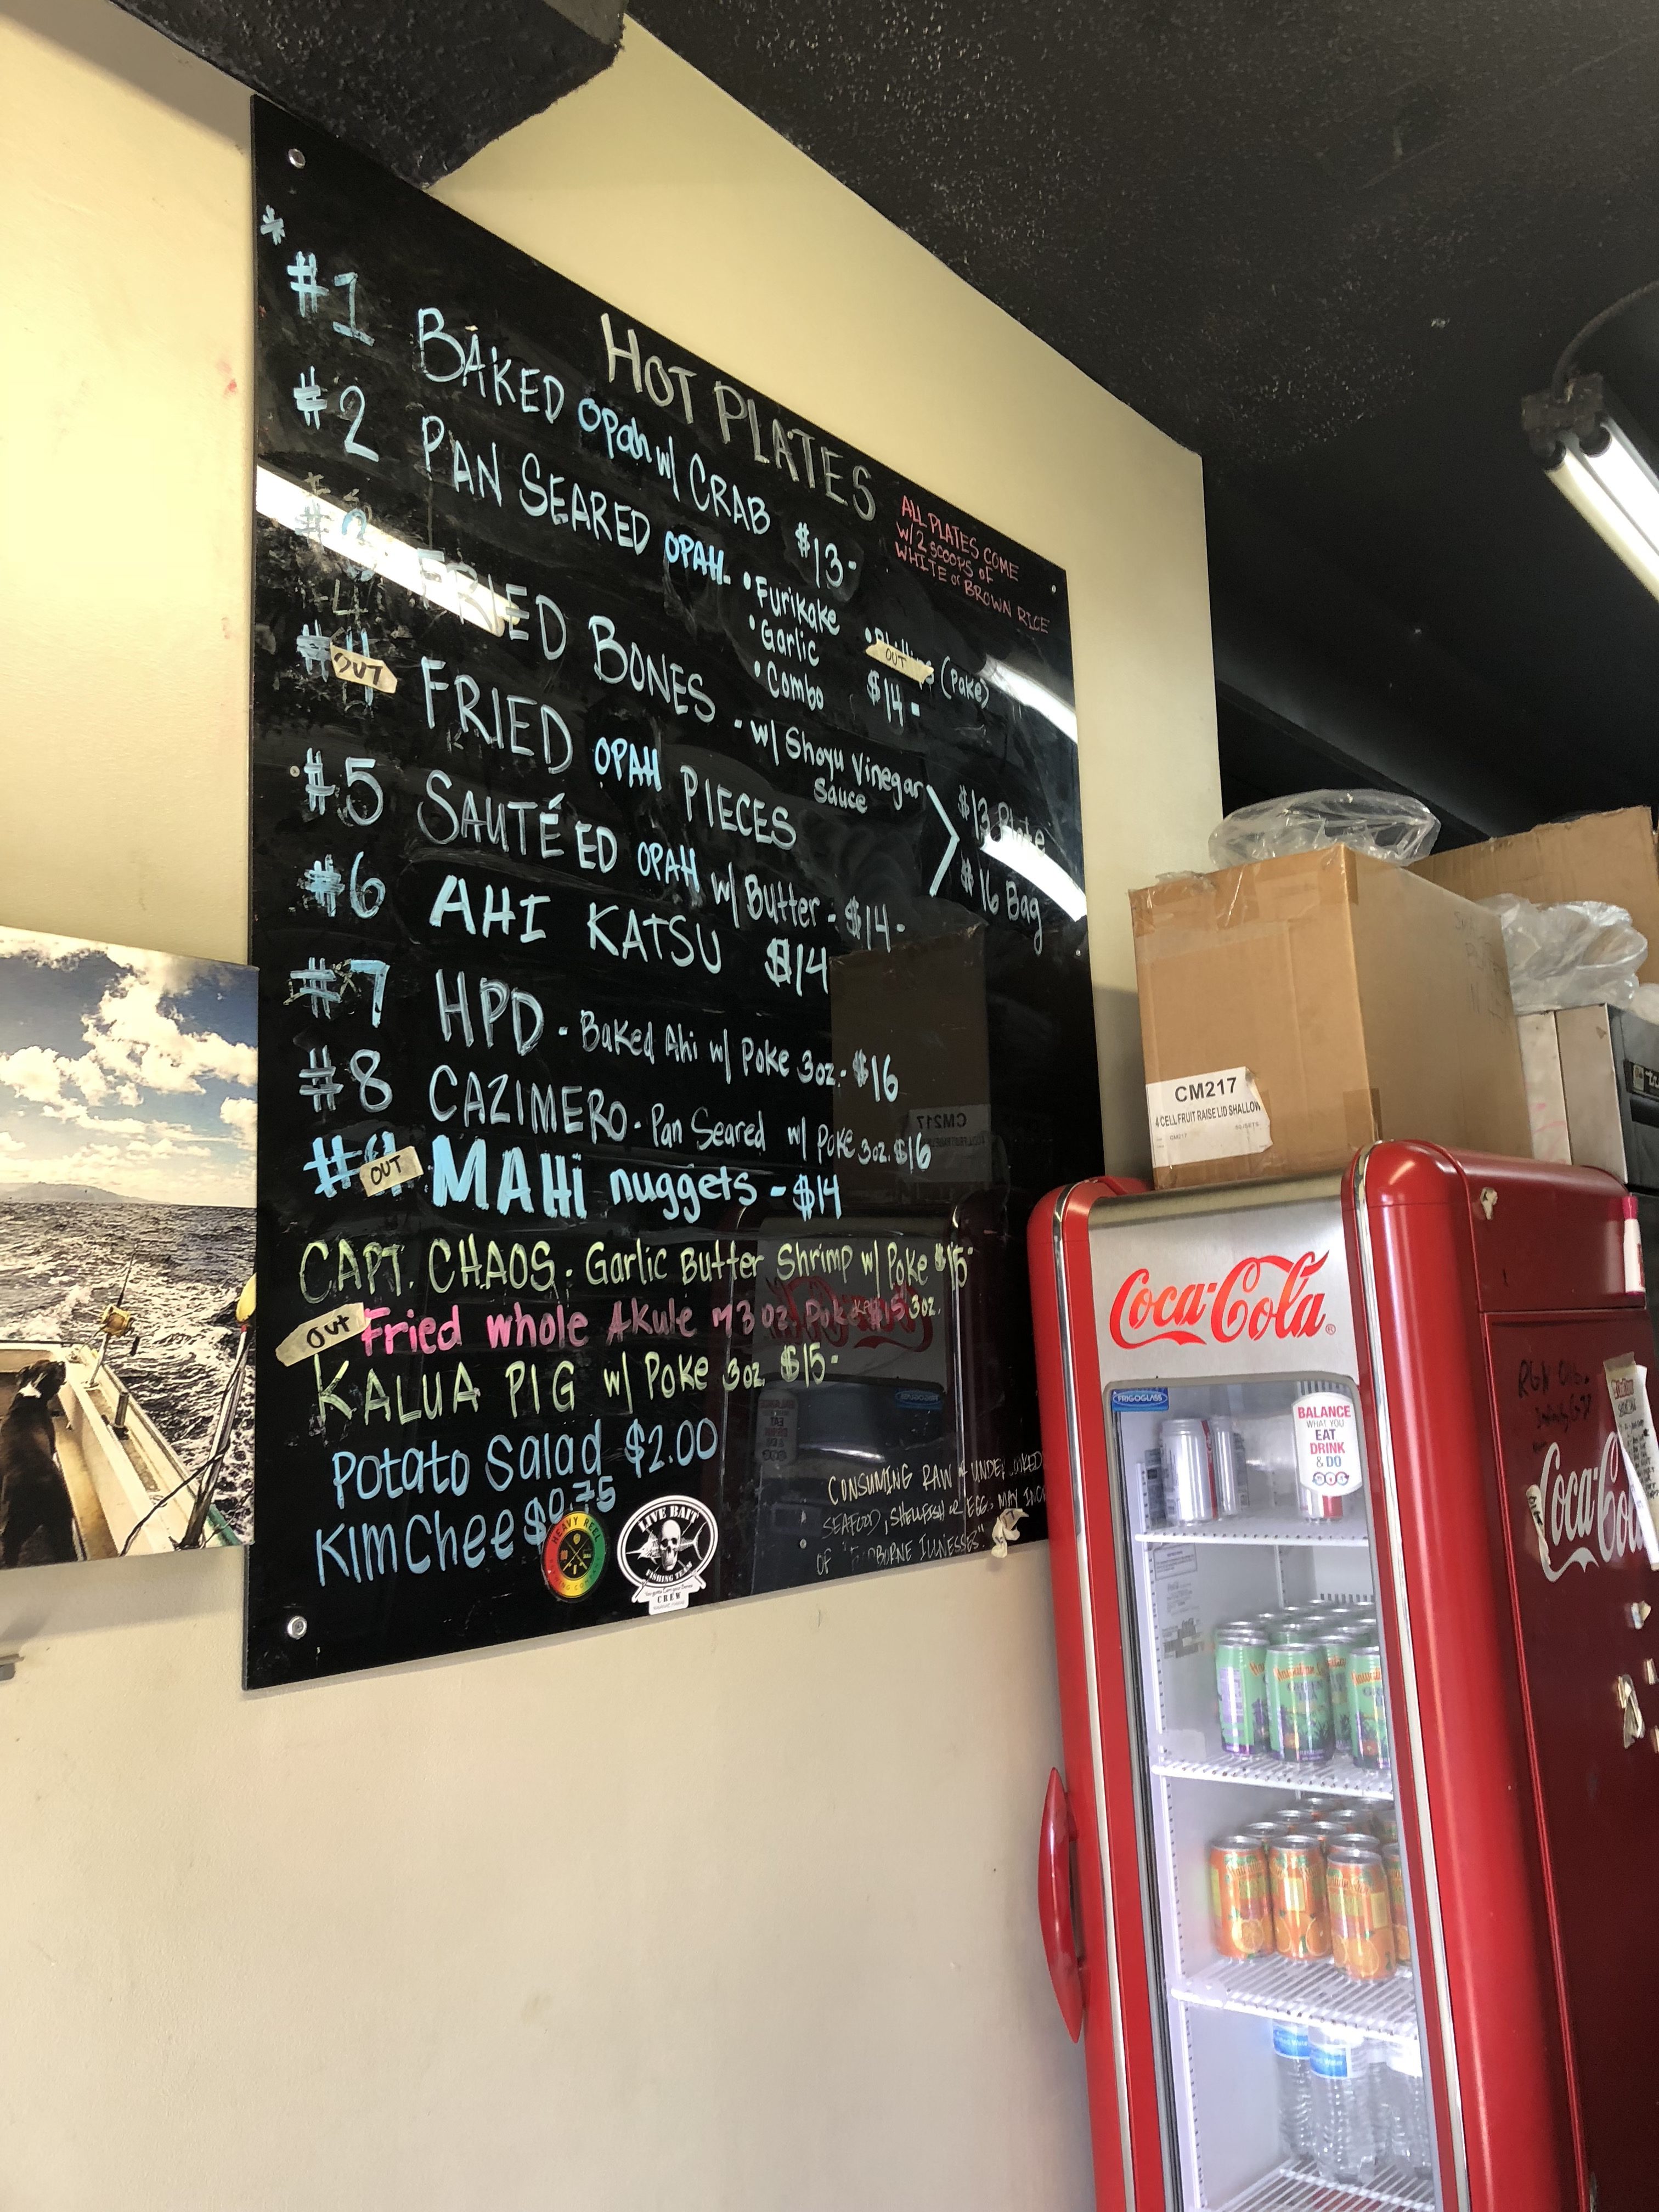 HOT PLATES
ALL PLATES COME
w/ 2 SCOOPS OF
WHITE or BROWN RICE
*
#1 BAKED Opah w/ CRAB $13-
#2 PAN SEARED OPAH - • Furikake
• Garlic
• Combo
OUT (Pake)
$14-
#3 FRIED BONES - w/ Shoyu Vinegar
Sauce
OUT FRIED OPAH PIECES
$13 Plate
$16 Bag
#5 SAUTÉED OPAH w/ Butter - $14-
#6 AHI KATSU $14
#7 HPD - Baked Ahi w/ Poke 3oz.- $16
#8 CAZIMERO - Pan Seared w/ Poke 3oz. $16
OUT MAHI nuggets - $14
CAPT. CHAOS - Garlic Butter Shrimp w/ Poke $15-
3oz.
OUT Fried whole Akule
KALUA PIG w/ Poke 3oz $15-
Potato Salad $2.00
KimChee $0.75
CONSUMING RAW or UNDERCOOKED
SEAFOOD, SHELLFISH or EGGS MAY
OF ILLNESSES"
HEAVY REEL
LIVE BAIT
FISHING TEAM
CREW
CM217
4 CELL FRUIT RAISE LID SHALLOW
CM217
Coca-Cola
FRIGOGLASS
BALANCE
WHAT YOU
EAT
DRINK
& DO
Coca-Co
Hawaiian